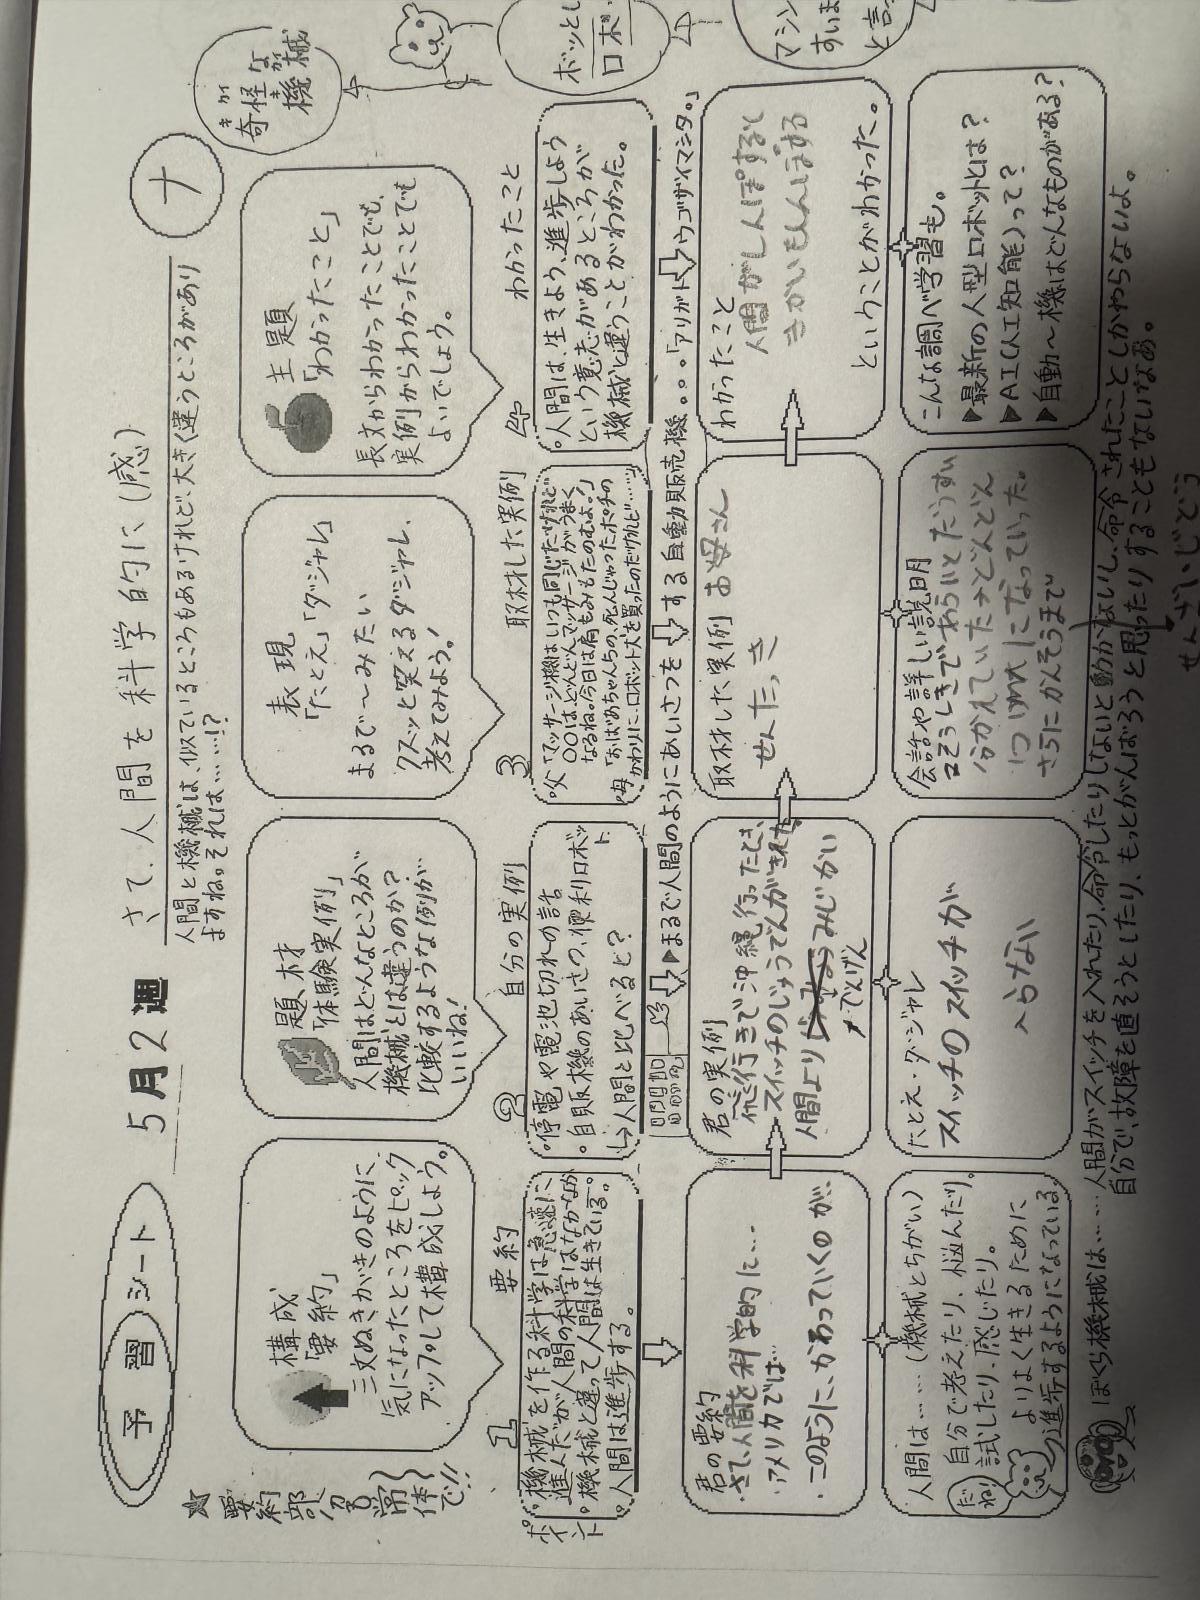 予習シート
5月2週
さて、人間を科学的に(感)
ナ
人間と機械は、似ているところもあるけれど、大きく違うところがあり
ますね。それは……!?
奇怪な
キカイ
機械
キ カイ
ボッとし
ロボ
マシン
すいま
と言
★要約部分も
常体で!!
構成
「要約」
三文ぬきがきのように
気になったところをピック
アップして構成しよう。
題材
「体験実例」
人間はどんなところが
機械とは違うのか?
比較するような例が
いいね!
表現
「たとえ」「ダジャレ」
まるで〜みたい
クスッと笑えるダジャレ、
考えてみよう!
主題
「わかったこと」
長文からわかったことでも、
実例からわかったことでも
よいでしょう。
ポイント
1 要約
・機械を作る科学は急速に
進んだが人間の科学はなかなか
・機械と違って人間は生きている。
・人間は進歩する。
2 自分の実例
・停電や電池切れの話
・自販機のあいさつ、便利ロボット
↳人間と比べると?
3 取材した実例
・父「マッサージ機はいつも同じだけれど
〇〇はどんどんマッサージがうまく
なるね。今日は肩もみもたのむよ。」
・母「おばあちゃんちの、死んじゃったポチの
かわりに、ロボット犬を買ったのだけれど……」
4 わかったこと
・人間は、生きよう、進歩しよう
という意志があるところが
機械と違うことがわかった。
▶まるで人間のようにあいさつをする自動販売機。。。「アリガトウゴザイマシタ。」
君の要約
・さて、人間を科学的に…
・アメリカでは…
・このように、かわっていくのが、
君の実例
飛行きで沖縄行ったとき、
スイッチのじゅうでんがきれた
人間より みじかい
でんげん
取材した実例 お母さん
せんたっき
わかったこと
人間がしんぽすると
きかいもしんぽする
ということがわかった。
人間は……(機械とちがい)
自分で考えたり、悩んだり、
試したり、感じたり。
よりよく生きるために
進歩するようになっている。
だね
たとえ・ダジャレ
スイッチのスイッチが
入らない
会話や詳しい説明
分かれていたのがどんどん
1つになっていった。
さらにかんそうまで
こんな調べ学習も。
▶最新の人型ロボットとは?
▶AI(人工知能)って?
▶自動〜機はどんなものがある?
ぼくら機械は……人間がスイッチを入れたり、命令したりしないと動かないし、命令されたことしかやらないよ。
自分で、故障を直そうとしたり、もっとがんばろうと思ったりすることもないなあ。
せんざいじどう